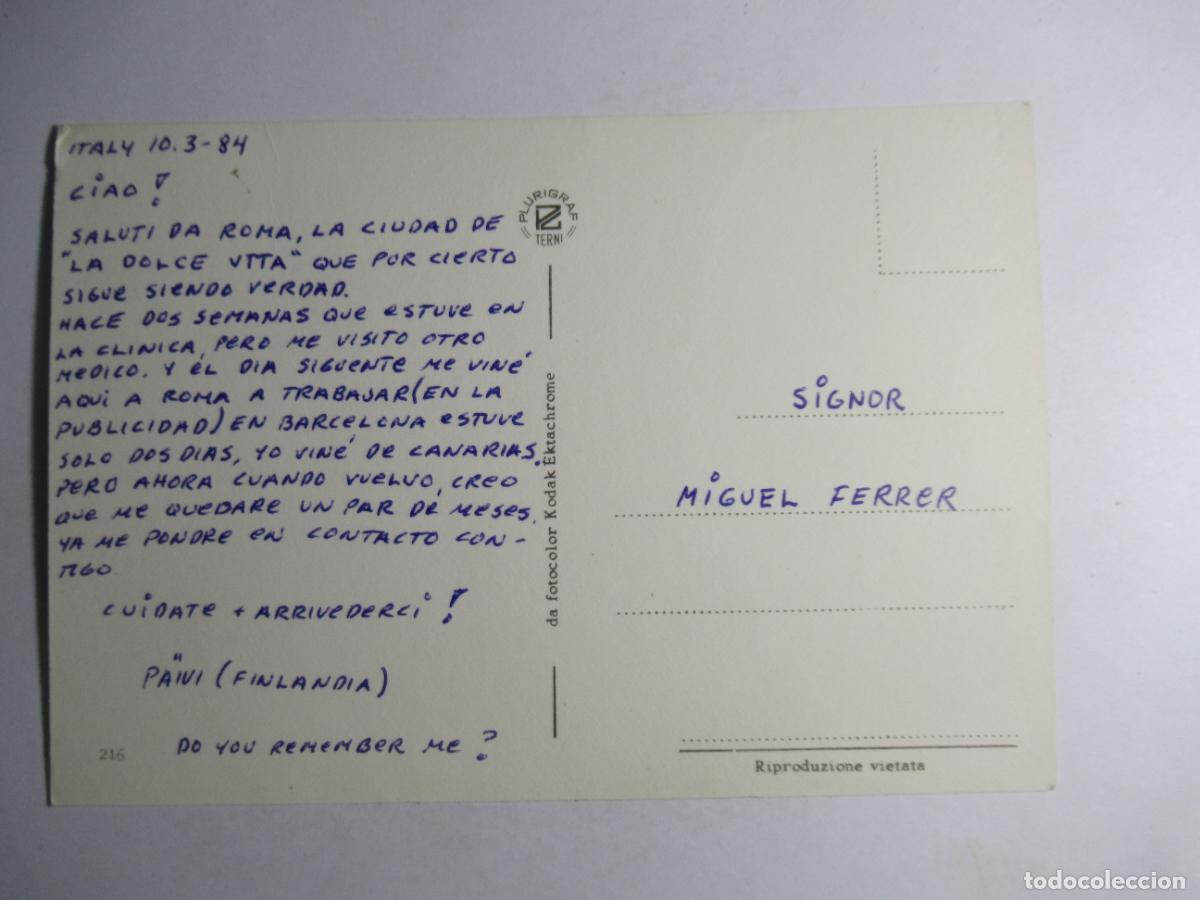 ITALY 10.3-84
CIAO!
SALUTI DA ROMA, LA CIUDAD DE
"LA DOLCE VITA" QUE POR CIERTO
SIGUE SIENDO VERDAD.
HACE DOS SEMANAS QUE ESTUVE EN
LA CLINICA, PERO ME VISITO OTRO
MEDICO. Y EL DIA SIGUENTE ME VINÉ
AQUI A ROMA A TRABAJAR (EN LA
PUBLICIDAD) EN BARCELONA ESTUVE
SOLO DOS DIAS, YO VINÉ DE CANARIAS.
PERO AHORA CUANDO VUELVO, CREO
QUE ME QUEDARE UN PAR DE MESES.
YA ME PONDRE EN CONTACTO CON-
TIGO
CUIDATE + ARRIVEDERCI!
PÄIVI (FINLANDIA)
DO YOU REMEMBER ME?
216
PLURIGRAF
TERNI
da fotocolor Kodak Ektachrome
SIGNOR
MIGUEL FERRER
Riproduzione vietata
todocoleccion